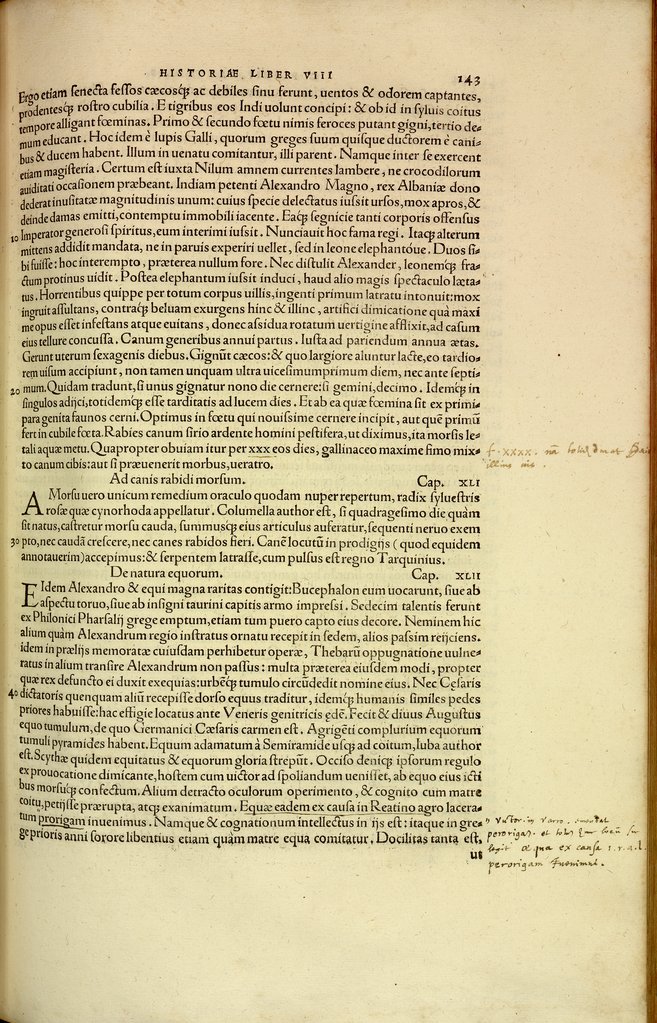 HISTORIAE LIBER VIII
143
Ergo etiam senecta fessos cæcosq; ac debiles sinu ferunt, uentos & odorem captantes,
prodentesq; rostro cubilia. E tigribus eos Indi uolunt concipi: & ob id in syluis coitus
tempore alligant fœminas. Primo & secundo fœtu nimis feroces putant gigni, tertio de-
mum educant. Hoc idem è lupis Galli, quorum greges suum quisque ductorem è cani-
bus & ducem habent. Illum in uenatu comitantur, illi parent. Namque inter se exercent
etiam magisteria. Certum est iuxta Nilum amnem currentes lambere, ne crocodilorum
auiditati occasionem præbeant. Indiam petenti Alexandro Magno, rex Albaniæ dono
dederat inusitatæ magnitudinis unum: cuius specie delectatus iussit ursos, mox apros, &
deinde damas emitti, contemptu immobili iacente. Eaq; segnicie tanti corporis offensus
10 Imperator generosi spiritus, eum interimi iussit. Nunciauit hoc fama regi. Itaq; alterum
mittens addidit mandata, ne in paruis experiri uellet, sed in leone elephantóue. Duos si-
bi fuisse: hoc interempto, præterea nullum fore. Nec distulit Alexander, leonemq; fra-
ctum protinus uidit. Postea elephantum iussit induci, haud alio magis spectaculo læta-
tus. Horrentibus quippe per totum corpus uillis, ingenti primum latratu intonuit: mox
ingruit assultans, contraq; beluam exurgens hinc & illinc, artifici dimicatione quà maxi
me opus esset infestans atque euitans, donec assidua rotatum uertigine afflixit, ad casum
eius tellure concussa. Canum generibus annui partus. Iusta ad pariendum annua ætas.
Gerunt uterum sexagenis diebus. Gignūt cæcos: & quo largiore aluntur lacte, eo tardio-
rem uisum accipiunt, non tamen unquam ultra uicesimumprimum diem, nec ante septi-
20 mum. Quidam tradunt, si unus gignatur nono die cernere: si gemini, decimo. Idemq; in
singulos adijci, totidemq; esse tarditatis ad lucem dies. Et ab ea quæ fœmina sit ex primi-
para genita faunos cerni. Optimus in fœtu qui nouissime cernere incipit, aut quē primū
fert in cubile fœta. Rabies canum sirio ardente homini pestifera, ut diximus, ita morsis le-
tali aquæ metu. Quapropter obuiam itur per xxx eos dies, gallinaceo maxime fimo mix-
to canum cibis: aut si præuenerit morbus, ueratro.
Ad canis rabidi morsum. Cap. XLI
A Morsu uero unicum remedium oraculo quodam nuper repertum, radix syluestris
rosæ quæ cynorhoda appellatur. Columella author est, si quadragesimo die quàm
sit natus, castretur morsu cauda, summusq; eius articulus auferatur, sequenti neruo exem
30 pto, nec caudā crescere, nec canes rabidos fieri. Canē locutū in prodigijs (quod equidem
annotauerim) accepimus: & serpentem latrasse, cum pulsus est regno Tarquinius.
De natura equorum. Cap. XLII
EIdem Alexandro & equi magna raritas contigit: Bucephalon eum uocarunt, siue ab
aspectu toruo, siue ab insigni taurini capitis armo impressi. Sedecim talentis ferunt
ex Philonici Pharsalij grege emptum, etiam tum puero capto eius decore. Neminem hic
alium quàm Alexandrum regio instratus ornatu recepit in sedem, alios passim reijciens.
idem in prælijs memoratæ cuiusdam perhibetur operæ, Thebarū oppugnatione uulne-
ratus in alium transire Alexandrum non passus: multa præterea eiusdem modi, propter
quæ rex defuncto ei duxit exequias: urbēq; tumulo circūdedit nomine eius. Nec Cęsaris
40 dictatoris quenquam aliū recepisse dorso equus traditur, idemq; humanis similes pedes
priores habuisse: hac effigie locatus ante Veneris genitricis ędē. Fecit & diuus Augustus
equo tumulum, de quo Germanici Cæsaris carmen est. Agrigēti complurium equorum
tumuli pyramides habent. Equum adamatum à Semiramide usq; ad coitum, Iuba author
est. Scythæ quidem equitatus & equorum gloria strepūt. Occiso denicq; ipsorum regulo
ex prouocatione dimicante, hostem cum uictor ad spoliandum uenisset, ab equo eius icti
bus morsucq; confectum. Alium detracto oculorum operimento, & cognito cum matre
coitu, petijsse prærupta, atq; exanimatum. Equæ eadem ex causa in Reatino agro lacera-
tum prorigam inuenimus. Namque & cognationum intellectus in ijs est: itaque in gre-
ge prioris anni sorore libentius etiam quàm matre equa comitatur. Docilitas tanta est,
us
xxxx. nā
perorigam
et
legit æqua ex causa i.r.a.l.
perorigam